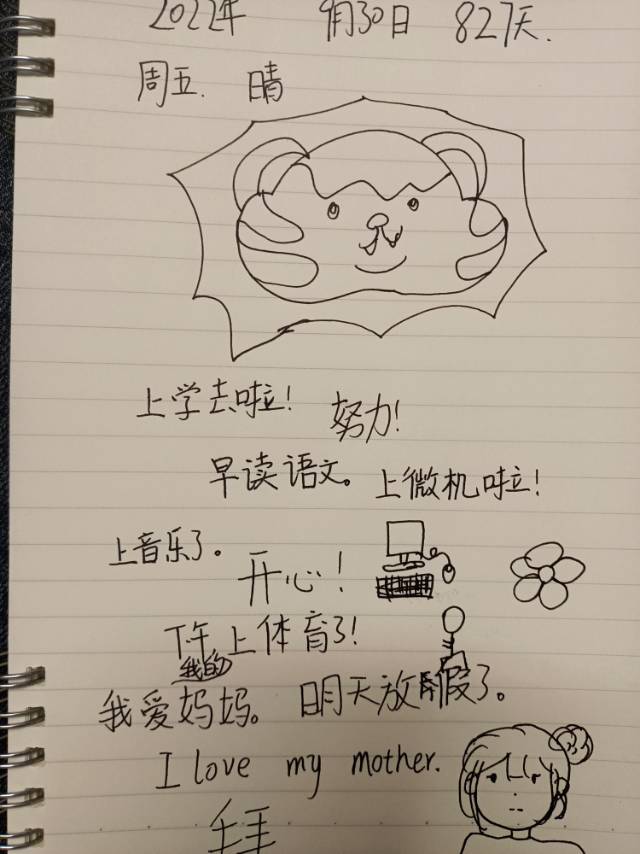 2022年 9月30日 827天.
周五. 晴
上学去啦! 努力!
早读语文。 上微机啦!
上音乐了。
开心!
下午上体育了!
我的
我爱妈妈。 明天放假了。
I love my mother.